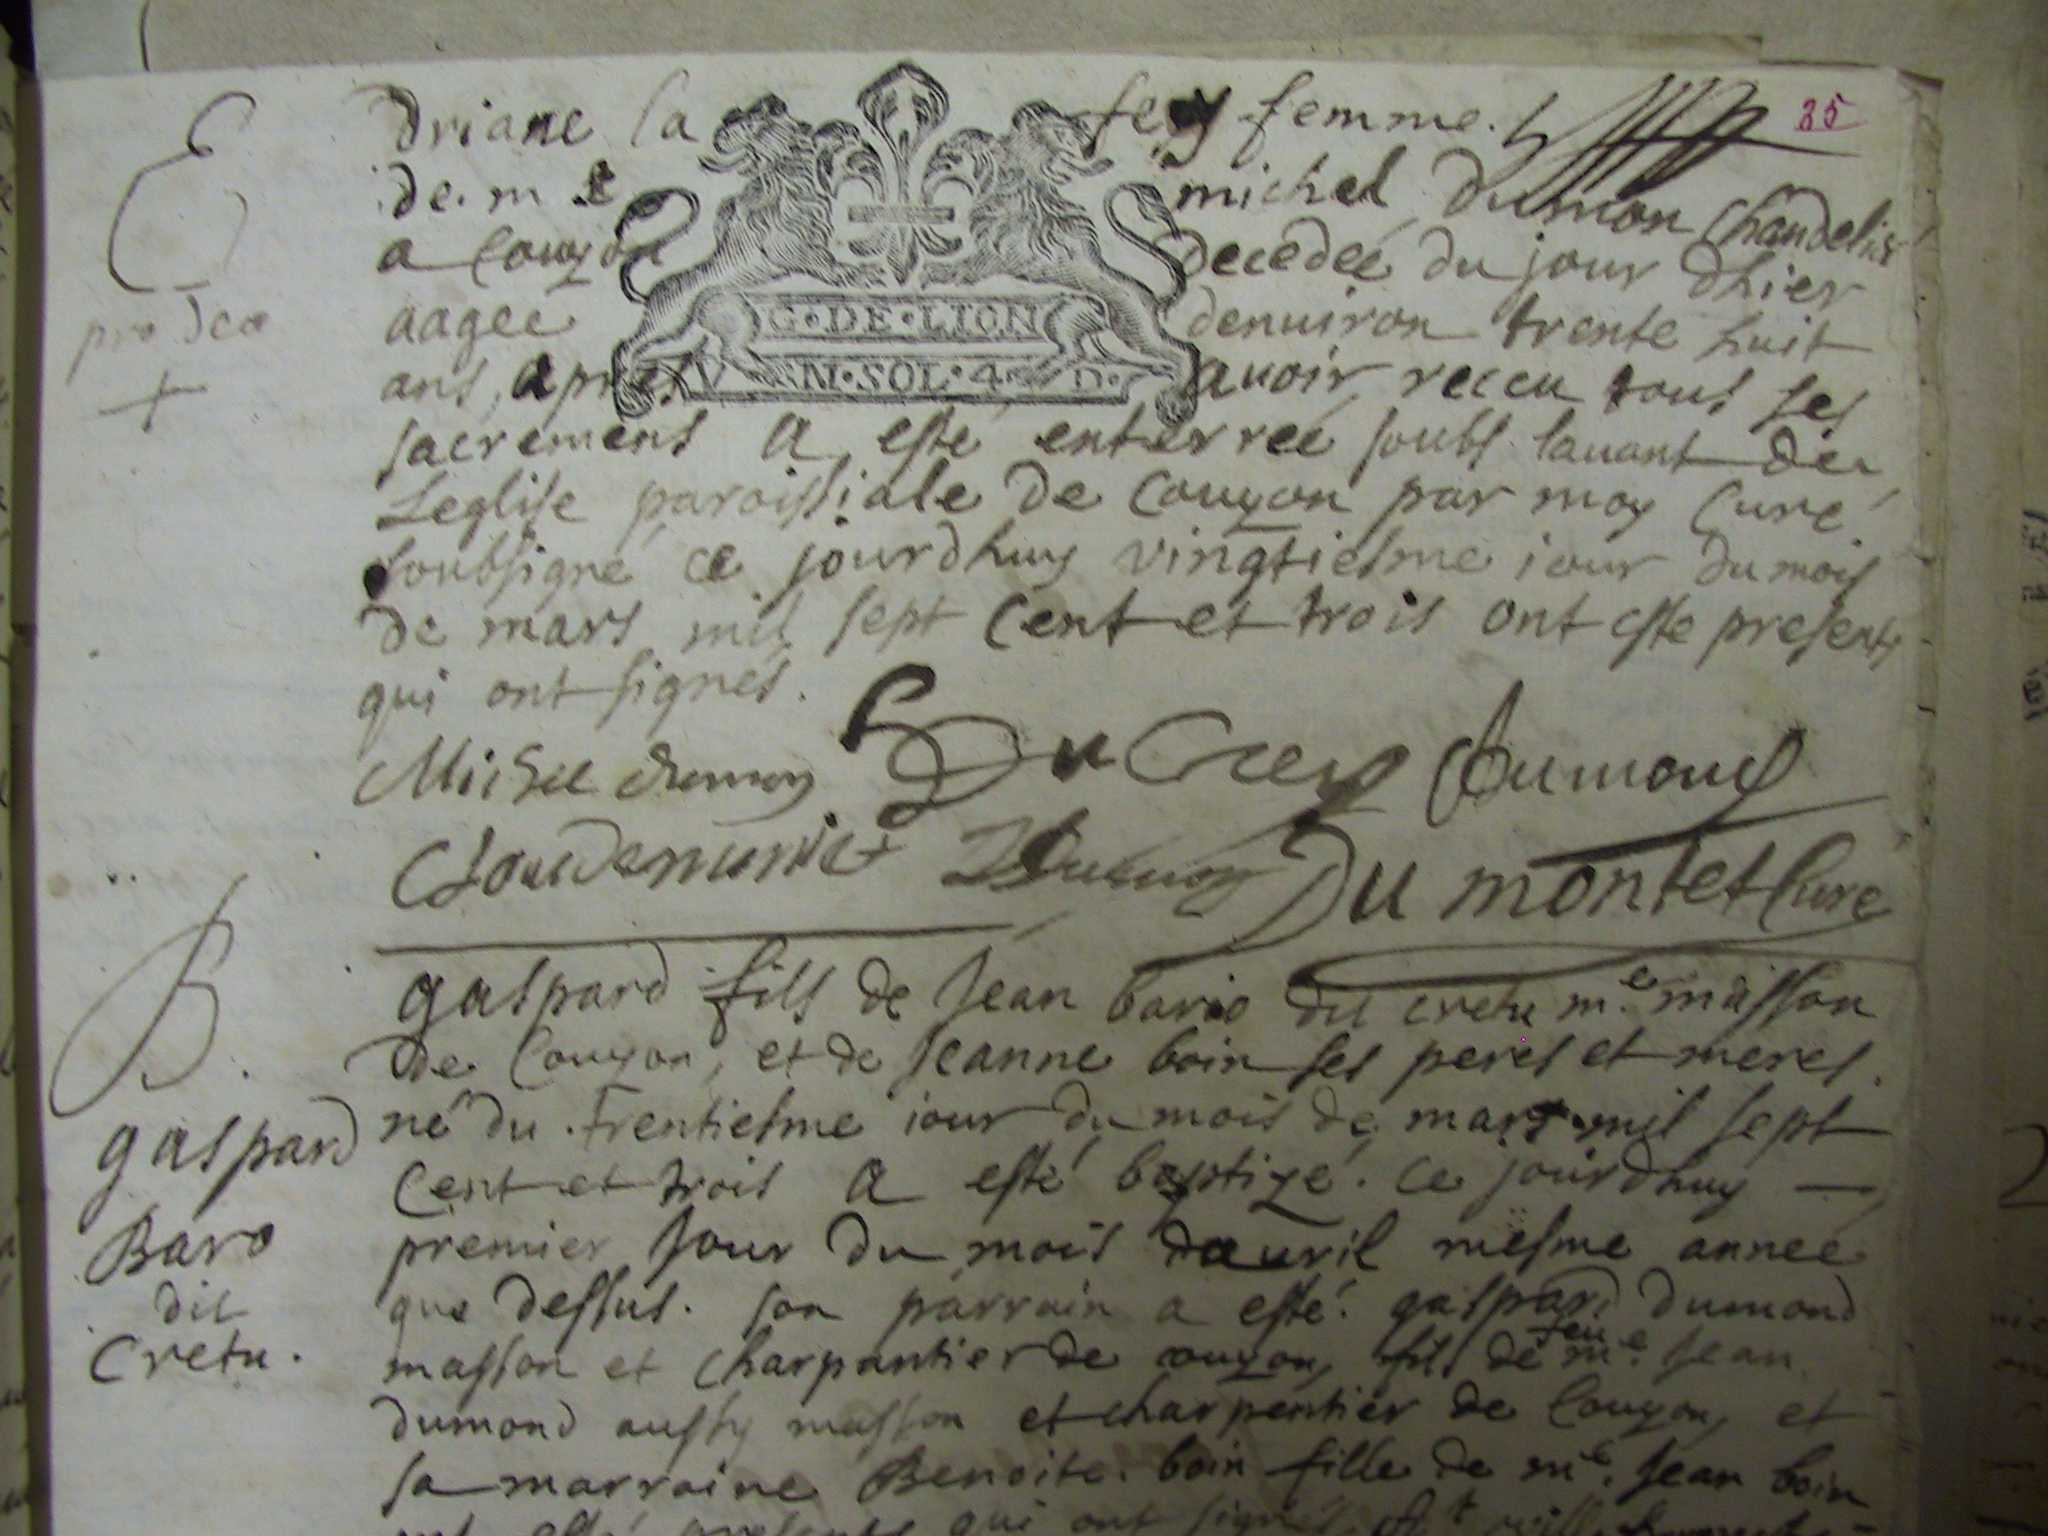 35
E
driane la fey femme
de. m michel dumon chandelier
a Couzon decedée du jour dhier
aagée denuiron trente huit
ans, apres auoir receu tous ses
G·DE·LION
SOL·4·D·
sacrements a esté enterreé soubs lauant de
Leglise paroissiale de Couzon par moy Curé
soubsigné ce jourdhuy vingtiesme iour du mois
de mars mil sept cent et trois ont este presents
qui ont signés.
pro deo
+
Michel dumon Du Crey dumond
Du montet Curé
B.
gaspard
Baro
dit
Cretu.
gaspard fils de Jean baro dit cretu m.e masson
de Couzon, et de Jeanne boin ses peres et meres.
né du trentiesme iour du mois de mars mil sept
cent et trois a esté baptizé. ce jourdhuy —
premier jour du mois dauril mesme anneé
que dessus. son parrain a esté. gaspard dumond
masson et charpantier de couzon, fils de feu m.e Jean
dumond aussy masson et charpentier de Couzon, et
sa marraine Benoite. boin fille de m.e Jean boin
ont esté presents qui ont signés